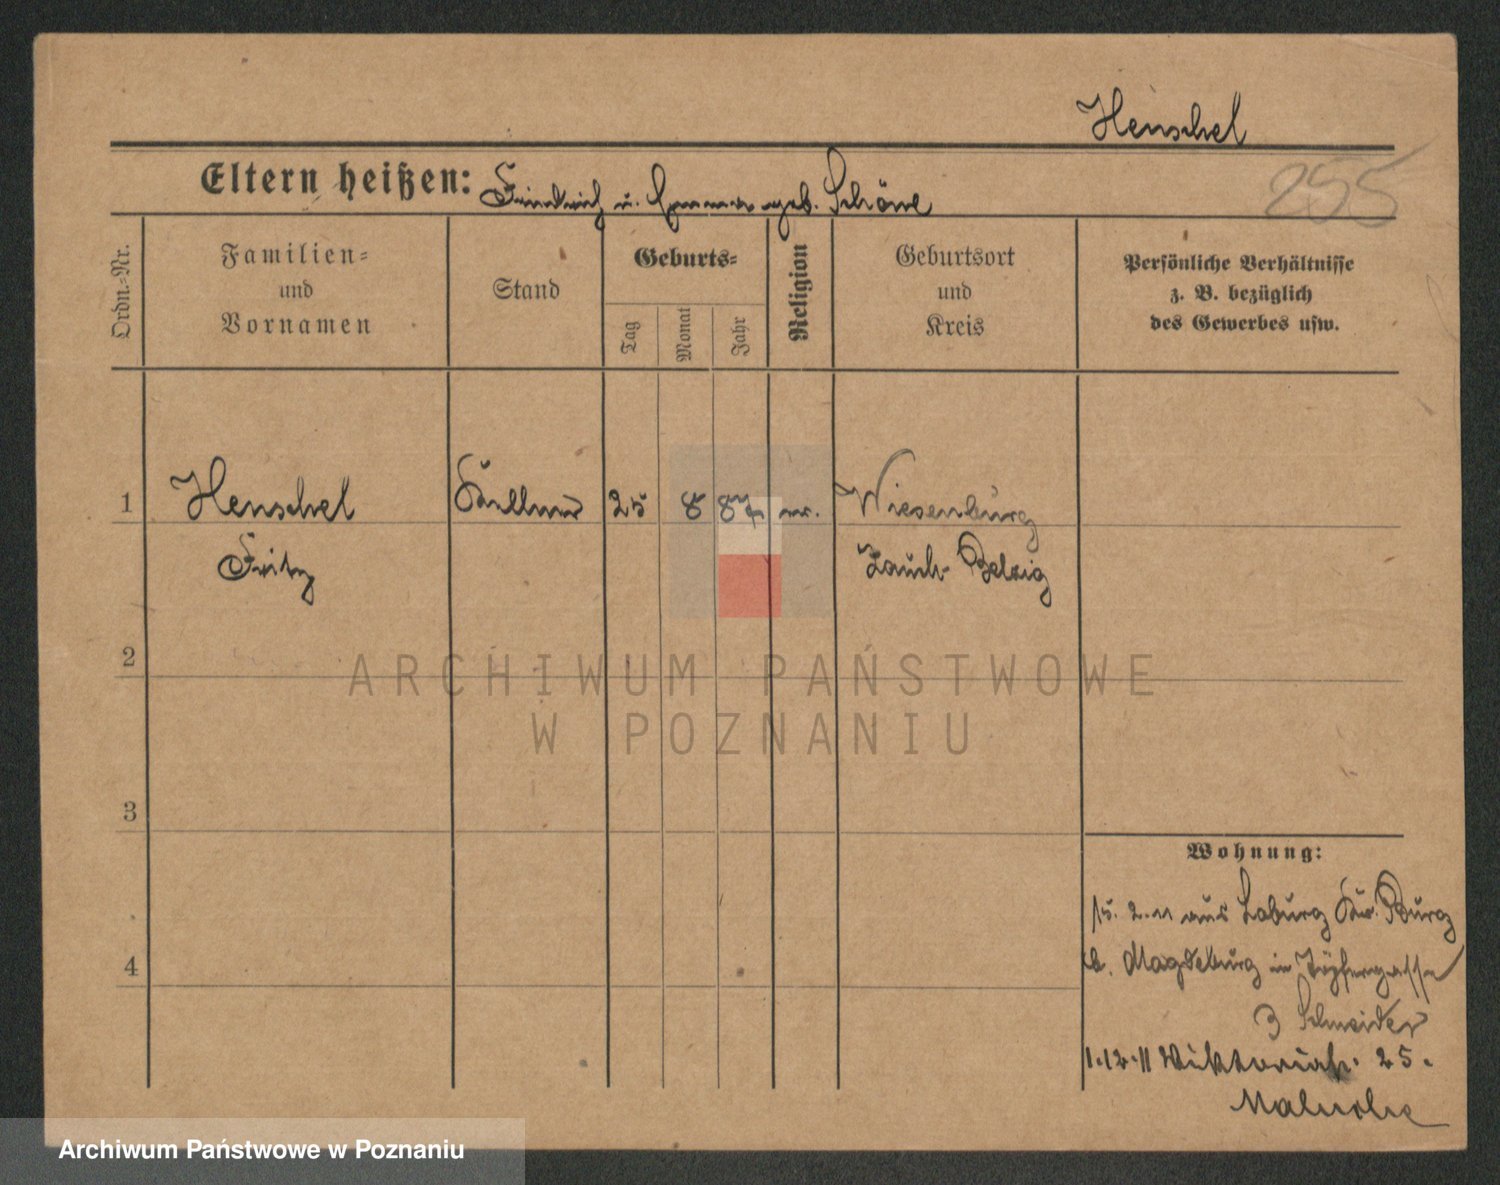 Henschel
Eltern heißen: Friedrich u. Emma geb. Schöne
255
Ordn.-Nr.
Familien-
und
Vornamen
Stand
Geburts-
Tag
Monat
Jahr
Religion
Geburtsort
und
Kreis
Persönliche Verhältnisse
z. B. bezüglich
des Gewerbes usw.
1 Henschel Kellner 25 8 87 ev. Wiesenburg
Fritz Zauch- Belzig
2
ARCHIWUM PAŃSTWOWE
W POZNANIU
3
Wohnung:
15. 2. 11 aus Loburg Kr. Burg
4
b. Magdeburg in Töpfergasse
3 Schneider
1.12.11 Viktoriastr. 25.
Archiwum Państwowe w Poznaniu